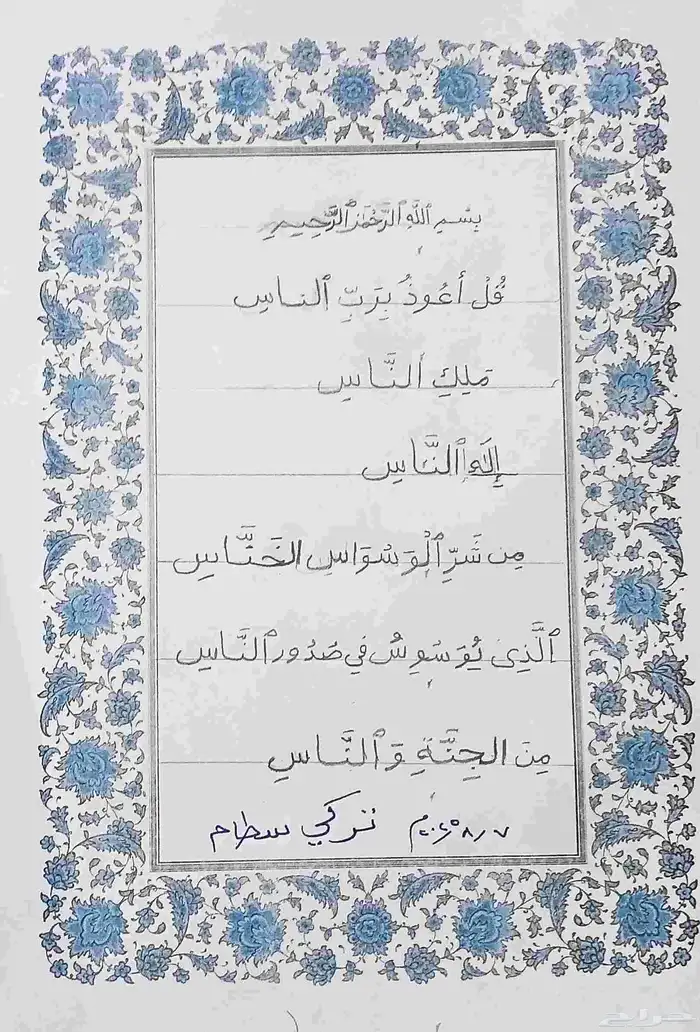 بِسْمِ ٱللَّهِ ٱلرَّحْمَٰنِ ٱلرَّحِيمِ
قُلْ أَعُوذُ بِرَبِّ ٱلناسِ
مَلِكِ ٱلنَّاسِ
إِلَٰهِ ٱلنَّاسِ
مِن شَرِّ ٱلْوَسْوَاسِ الخَنَّاسِ
ٱلَّذِى يُوَسْوِسُ فِي صُدُورِ ٱلنَّاسِ
مِنَ الجِنَّةِ وَٱلنَّاسِ
تركي سطام
حراج